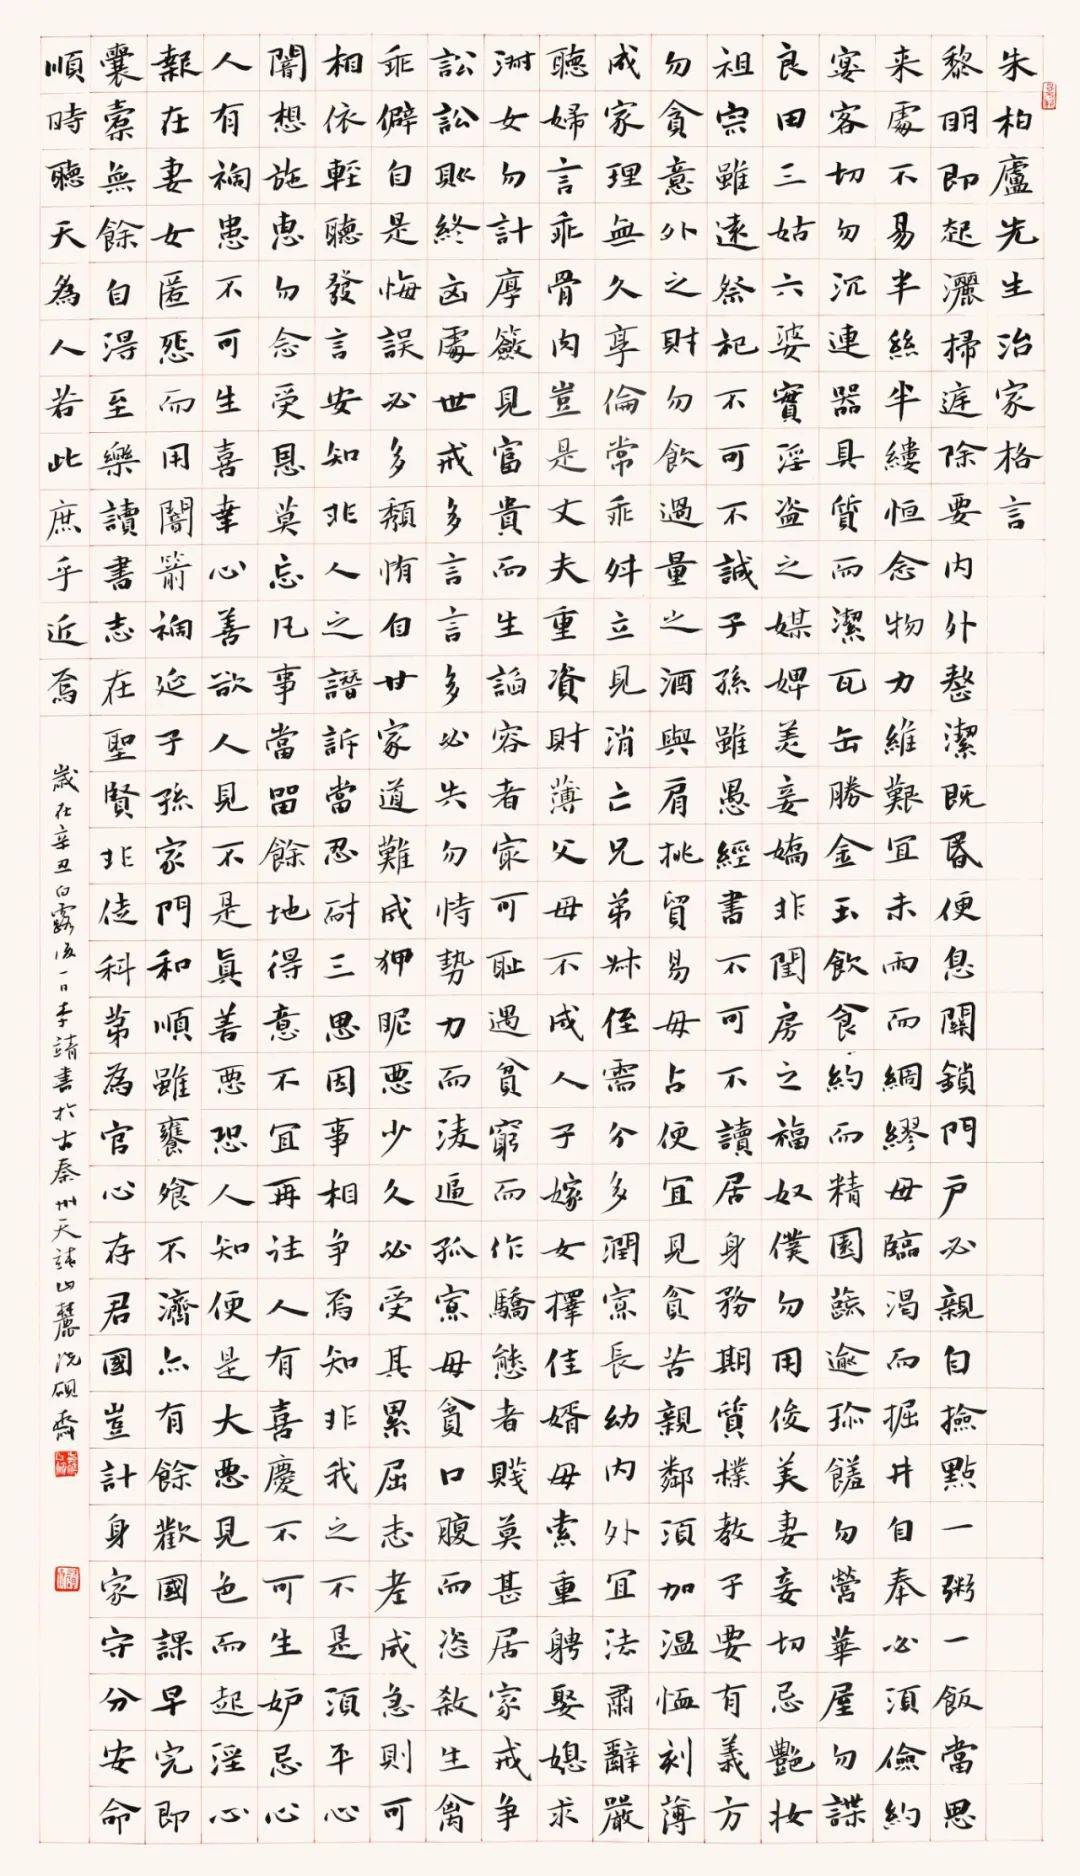 朱柏廬先生治家格言
黎明即起灑掃庭除要内外整潔既昬便息關鎖門户必親自撿點一粥一飯當思
来處不易半絲半縷恒念物力維艱宜未雨而綢繆毋臨渴而掘井自奉必須儉約
宴客切勿沉連器具質而潔瓦缶勝金玉飲食約而精園蔬逾珎饈勿營華屋勿謀
良田三姑六婆實淫盗之媒婢美妾嬌非閨房之福奴僕勿用俊美妻妾切忌艷妝
祖宗雖遠祭祀不可不誠子孫雖愚經書不可不讀居身務期質樸教子要有義方
勿貪意外之財勿飲過量之酒與肩挑貿易毋占便宜見貧苦親鄰須加温恤刻薄
成家理無久享倫常乖舛立見消亡兄弟叔侄需分多潤寡長幼内外宜法肅辭嚴
聽婦言乖骨肉豈是丈夫重資財薄父母不成人子嫁女擇佳婿毋索重聘娶媳求
淑女勿計厚奩見富貴而生諂容者最可耻遇貧窮而作驕態者賤莫甚居家戒争
訟訟則終凶處世戒多言言多必失勿恃勢力而淩逼孤寡毋貪口腹而恣殺生禽
乖僻自是悔誤必多頽惰自甘家道難成狎昵惡少久必受其累屈志老成急則可
相依輕聽發言安知非人之譖訴當忍耐三思因事相争焉知非我之不是須平心
闇想施惠勿念受恩莫忘凡事當留餘地得意不宜再往人有喜慶不可生妒忌心
人有禍患不可生喜幸心善欲人見不是真善惡恐人知便是大惡見色而起淫心
報在妻女匿怨而用闇箭禍延子孫家門和順雖饔飧不濟亦有餘歡國課早完即
囊橐無餘自得至樂讀書志在聖賢非徒科第為官心存君國豈計身家守分安命
順時聽天為人若此庶乎近焉
歲在辛丑白露後一日李靖書於古秦州天靖山麓洗硯齋